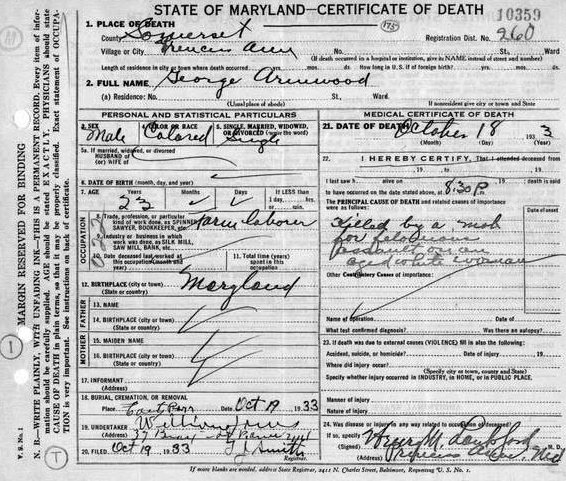 STATE OF MARYLAND—CERTIFICATE OF DEATH
10359
1. PLACE OF DEATH
County Somerset
175
Registration Dist. No. 260
Village or City Princess Anne No. St. Ward
(If death occurred in a hospital or institution, give its NAME instead of street and number)
Length of residence in city or town where death occurred yrs. mos. ds. How long in U. S. if of foreign birth? yrs. mos. ds.
2. FULL NAME George Armwood
(a) Residence: No. St., Ward.
(Usual place of abode) If nonresident give city or town and State
PERSONAL AND STATISTICAL PARTICULARS
3. SEX 4. COLOR OR RACE 5. SINGLE, MARRIED, WIDOWED, OR DIVORCED (write the word)
Male Colored Single
5a. If married, widowed, or divorced
HUSBAND of
(or) WIFE of
6. DATE OF BIRTH (month, day, and year)
7. AGE Years Months Days If LESS than
1 day, hrs.
or min.
23
OCCUPATION
8. Trade, profession, or particular
kind of work done, as SPINNER,
SAWYER, BOOKKEEPER, etc.
farm laborer
9. Industry or business in which
work was done, as SILK MILL,
SAW MILL, BANK, etc.
10. Date deceased last worked at
this occupation (month and
year)
11. Total time (years)
spent in this
occupation
12. BIRTHPLACE (city or town)
(State or country)
Maryland
FATHER
13. NAME
14. BIRTHPLACE (city or town)
(State or country)
MOTHER
15. MAIDEN NAME
16. BIRTHPLACE (city or town)
(State or country)
17. INFORMANT
(Address)
18. BURIAL, CREMATION, OR REMOVAL
Place Date Oct 19, 1933
19. UNDERTAKER William
(Address)
20. FILED Oct 19, 1933 Smith
Registrar.
MEDICAL CERTIFICATE OF DEATH
21. DATE OF DEATH October 18 1933
(Month) (Day) (Year)
22. I HEREBY CERTIFY, That I attended deceased from
, 19 , to , 19
I last saw h alive on , 19 ; death is said
to have occurred on the date stated above, at 8:30 P. m.
The PRINCIPAL CAUSE OF DEATH and related causes of importance
were as follows:
Date of onset
Killed by a mob
for felonious
assault on an
aged white woman
Other Contributory Causes of importance:
Name of operation Date of
What test confirmed diagnosis? Was there an autopsy?
23. If death was due to external causes (VIOLENCE) fill in also the following:
Accident, suicide, or homicide? Date of injury , 19
Where did injury occur?
(Specify city or town, county and State)
Specify whether injury occurred in INDUSTRY, in HOME, or in PUBLIC PLACE.
Manner of injury
Nature of injury
24. Was disease or injury in any way related to occupation of deceased?
If so, specify
(Signed) Henry M. Lankford M. D.
(Address) Princess Anne, Md
If more blanks are needed, address State Registrar, 2411 N. Charles Street, Baltimore, Requesting "U. S. No. 1.
V S. No. 1
MARGIN RESERVED FOR BINDING
N. B.—WRITE PLAINLY, WITH UNFADING INK—THIS IS A PERMANENT RECORD. Every item of information should be carefully supplied. AGE should be stated EXACTLY. PHYSICIANS should state
CAUSE OF DEATH in plain terms, so that it may be properly classified. Exact statement of OCCUPATION is very important. See instructions on back of certificate.
1
T